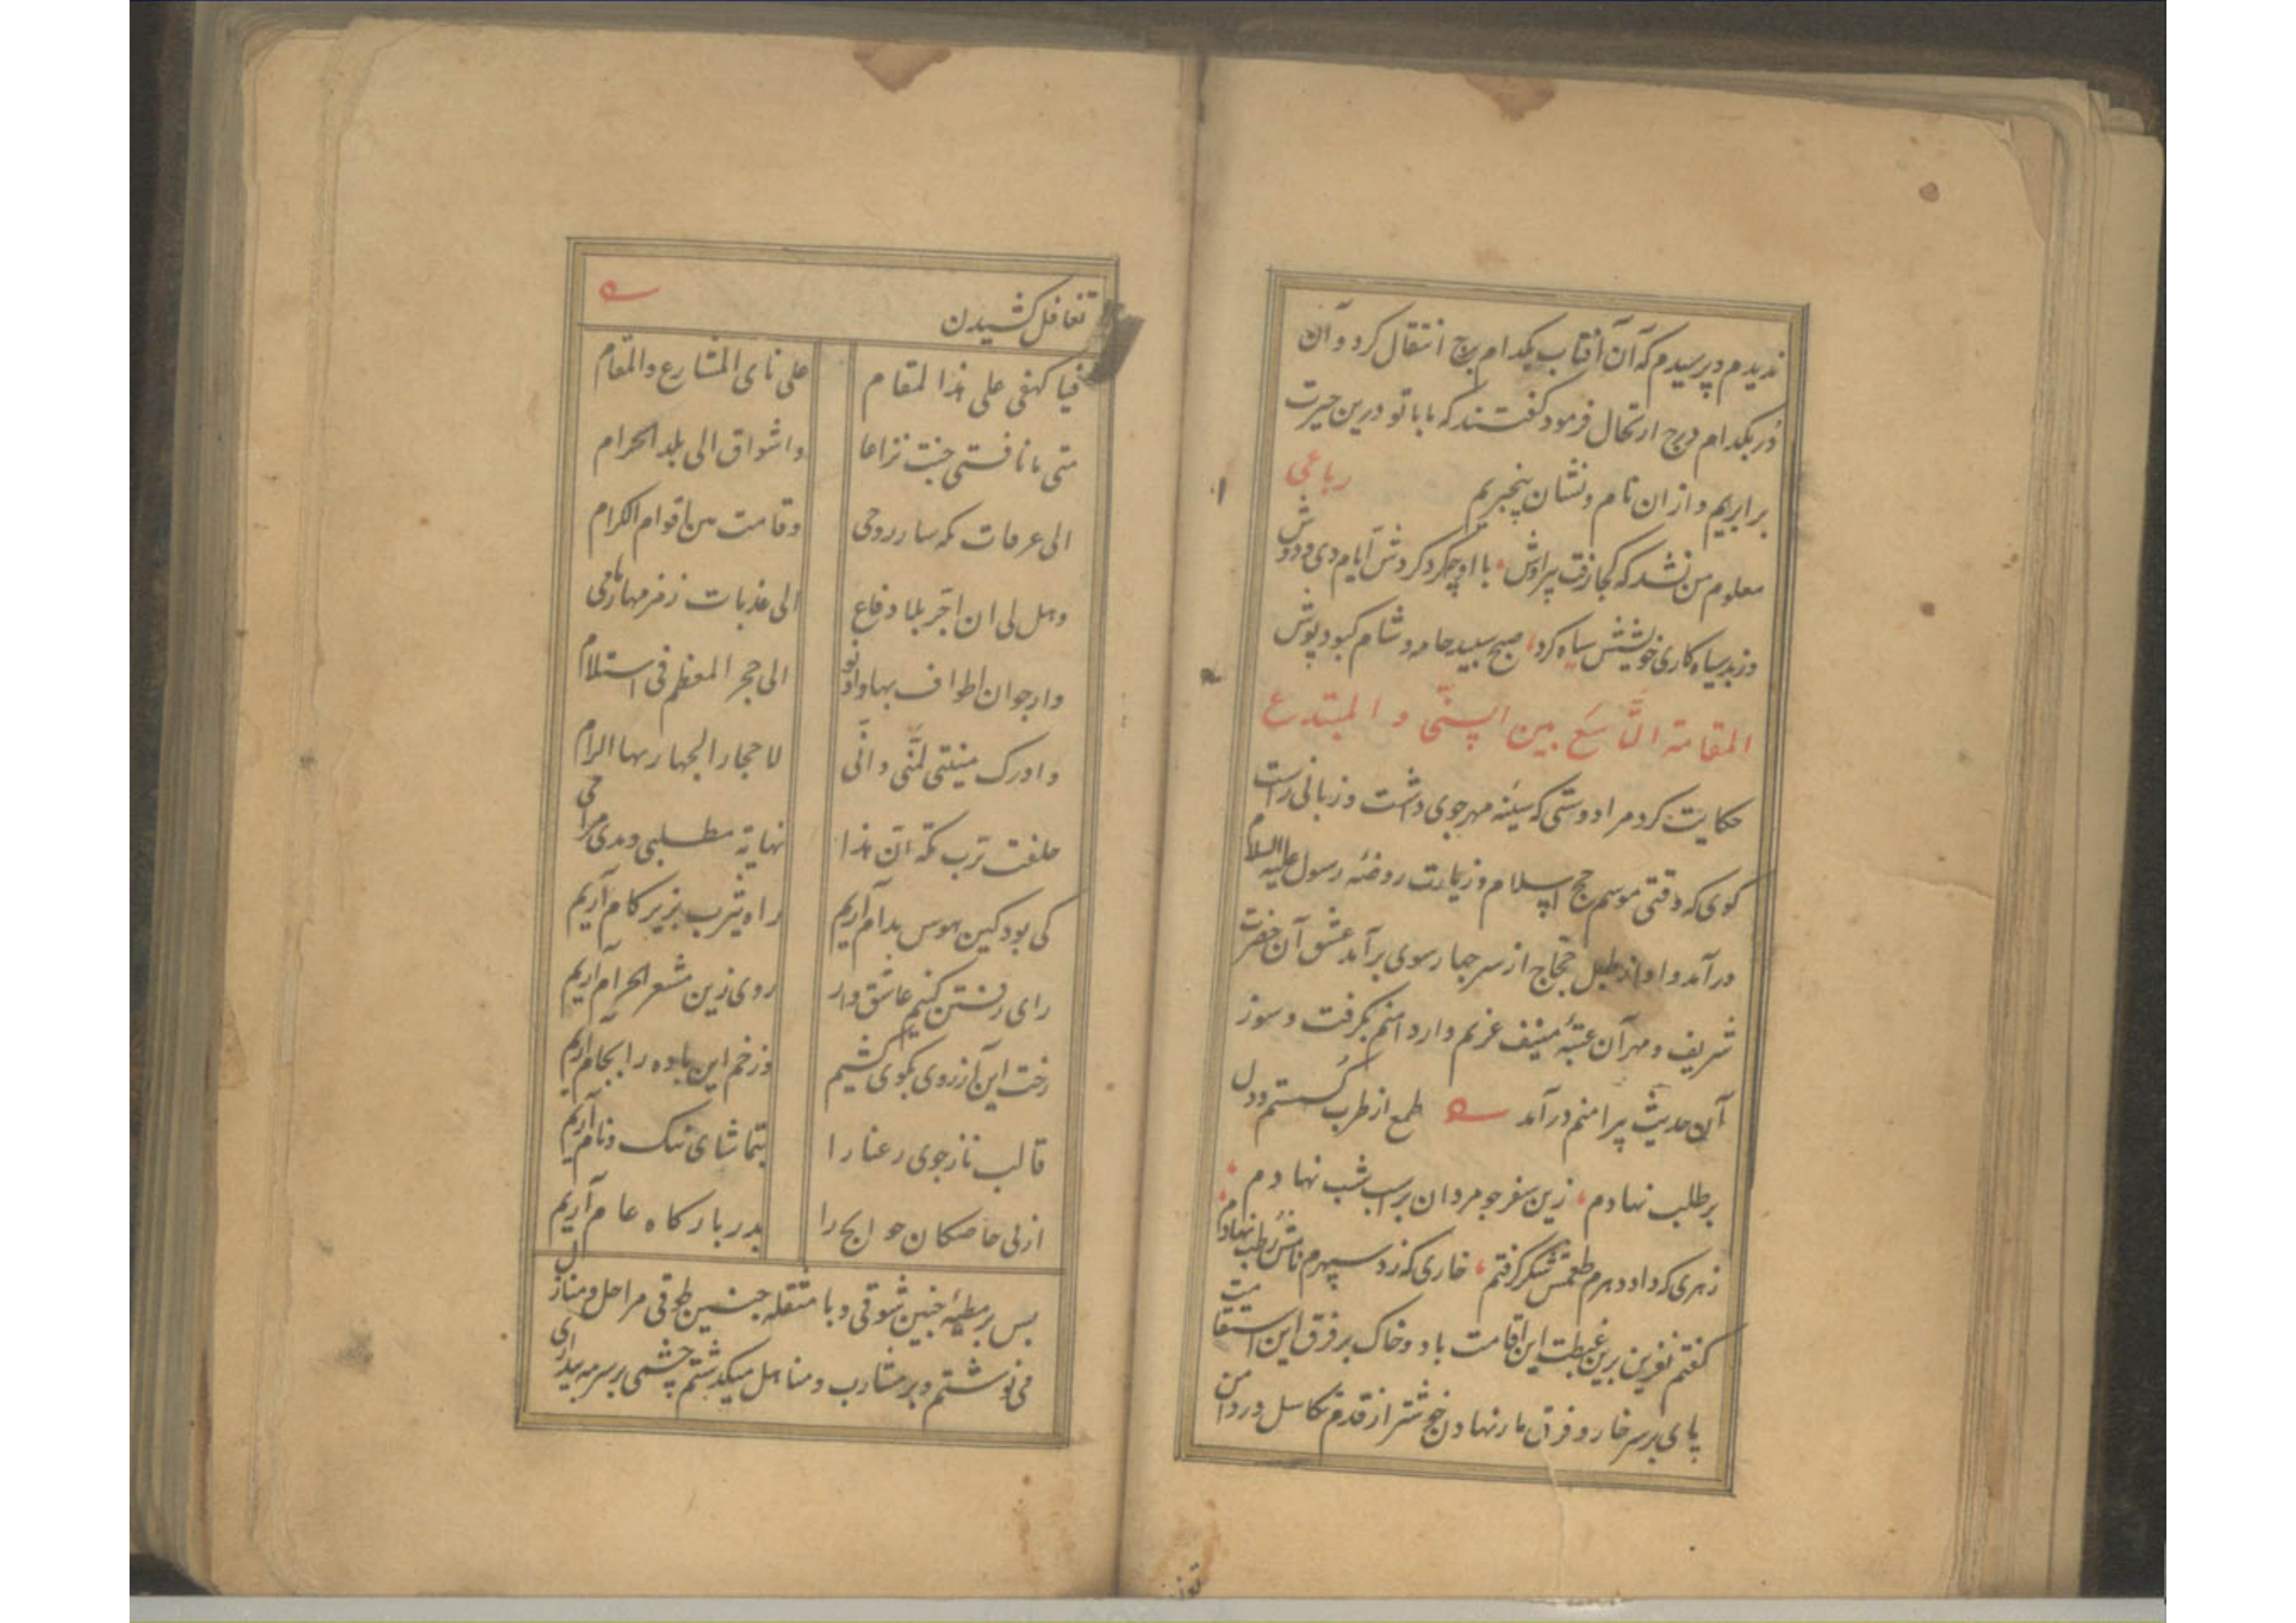 ندیدم و پرسیدم که آن آفتاب بکدام برج انتقال کرد و آن
در بکدام درج ارتحال فرمود گفتند که بابا تو درین حیرت
برابریم و از ان نام و نشان بیخبریم رباعی
معلوم من نشد که کجا رفت پیراوش با او چکرد کردش ایام دی و دوش
وز بد سیاه کاری خویشش سیاه کرد صبح سپید جامه و شام کبود پوش
المقامة التاسع بین السنی و المبتدع
حکایت کرد مرا دوستی که سینه مهرجوی داشت و زبانی راست
کوی که وقتی موسم حج اسلام و زیارت روضه رسول علیه السلام
درآمد و اواز طبل حجاج از سر چهار سوی برآمد عشق آن حضرت
شریف و مهر آن عتبه منیف غریم وار دامنم بگرفت و سوز
آن حدیث پیرامنم درآمد طمع از طرب گسستم و دل
بر طلب نهادم زین سفر چو مردان بر اسب شب نهادم
زهری که داد دهرم طعمش شکر گرفتم خاری که زد سپهرم نامش رطب نهادم
گفتم نفرین برین غبطت این اقامت باد و خاک بر فرق این استقامت
پای بر سر خار و فرق مار نهادن حج شتر از قدم تکاسل در دامن
تغافل کشیدن
فیا کهفی علی هذا المقام علی نای المشارع والمقام
متی ما نافستی جنت نزاعا واشواق الی بلد الحرام
الی عرفات مکه سار روحی وقامت من اقوام الکرام
وهل لی ان اجر بلا دفاع الی عذبات زمزمها زمامی
وارجوان اطواف بها الی حجر المعظم فی استلام
وادرک منیتی لمنی وانی لاحجار الجمار بها الرام
حلفت ترب مکة ان هذا نهایة مطلبی ومدی مرامی
کی بود کین هوس بدام آریم راه یثرب بزیر کام آریم
رای رفتن کنیم عاشق وار روی زین مشعر الحرام آریم
رخت این آرزوی بکوی کشیم وز خم این باده را بجام آریم
قالب ناز جوی رعنا را بتماشای ننک و نام آریم
از پی خاصکان حوایج را بدر بارکاه عام آریم
بس بر مطیه چنین شوقی و با متقله چنین طوقی مراحل و منازل
می نوشتم و بر مشارب و مناهل میکذشتم چشمی بر سرمه بیداری